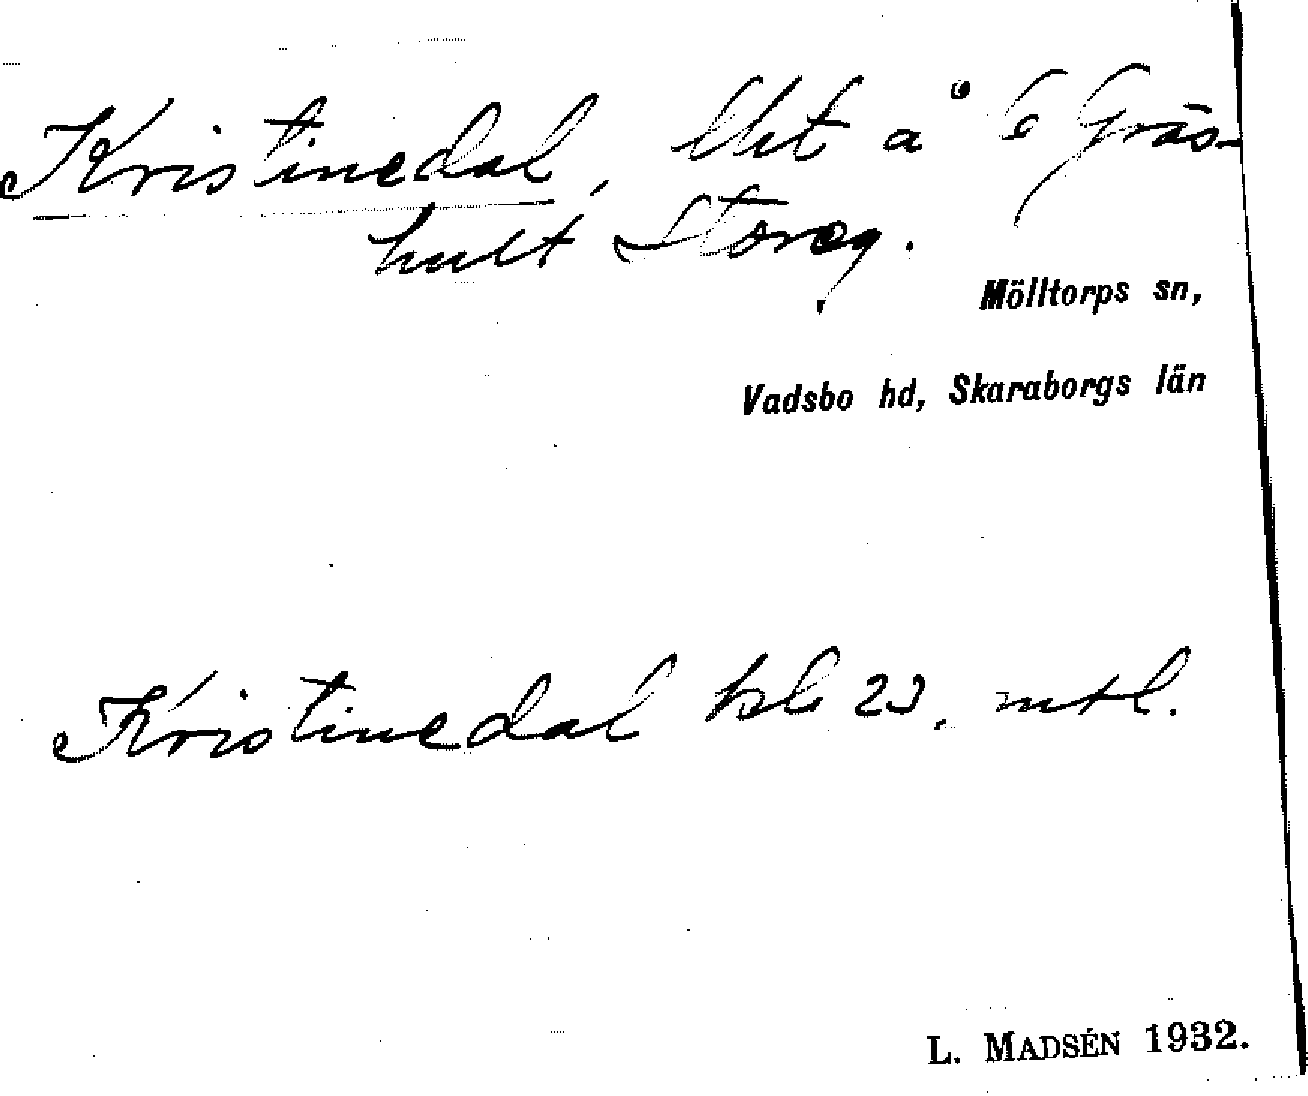 Kristinedal, lht å 6 Gräs-
hult Storeg.
Mölltorps sn,
Vadsbo hd, Skaraborgs län
Kristinedal hbl 23, mtl.
L. MADSÉN 1932.